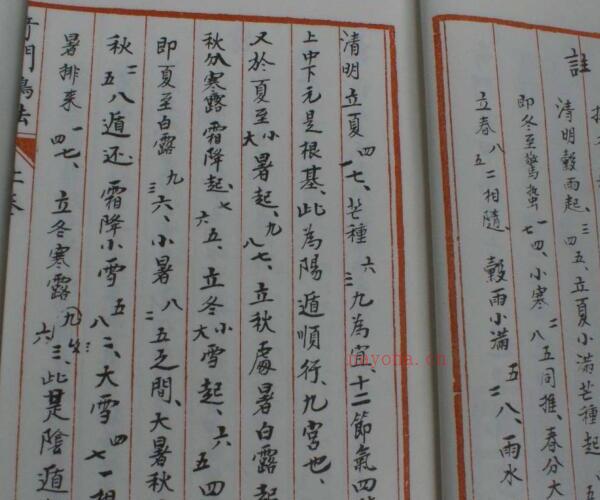 註
清明穀雨起、三四五、立夏小滿芒種起
即冬至驚蟄一七四、小寒二八五同推、春分大
立春八五二相隨、穀雨小滿五二八、雨水
清明立夏四一七、芒種六三九為宜、十二節氣四
上中下元是根基、此為陽遁順行、九宮也、
又於夏至小大暑起、九八七、立秋處暑白露起
秋分寒露霜降起、七六五、立冬小大雪起、六五四
即夏至白露九三六、小暑八二五之間、大暑秋
秋二五八遁还、霜降小雪五八二、大雪四七一相
暑排来一四七、立冬寒露六九三、此是陰遁
奇門鳴法
上卷
moyona.cn